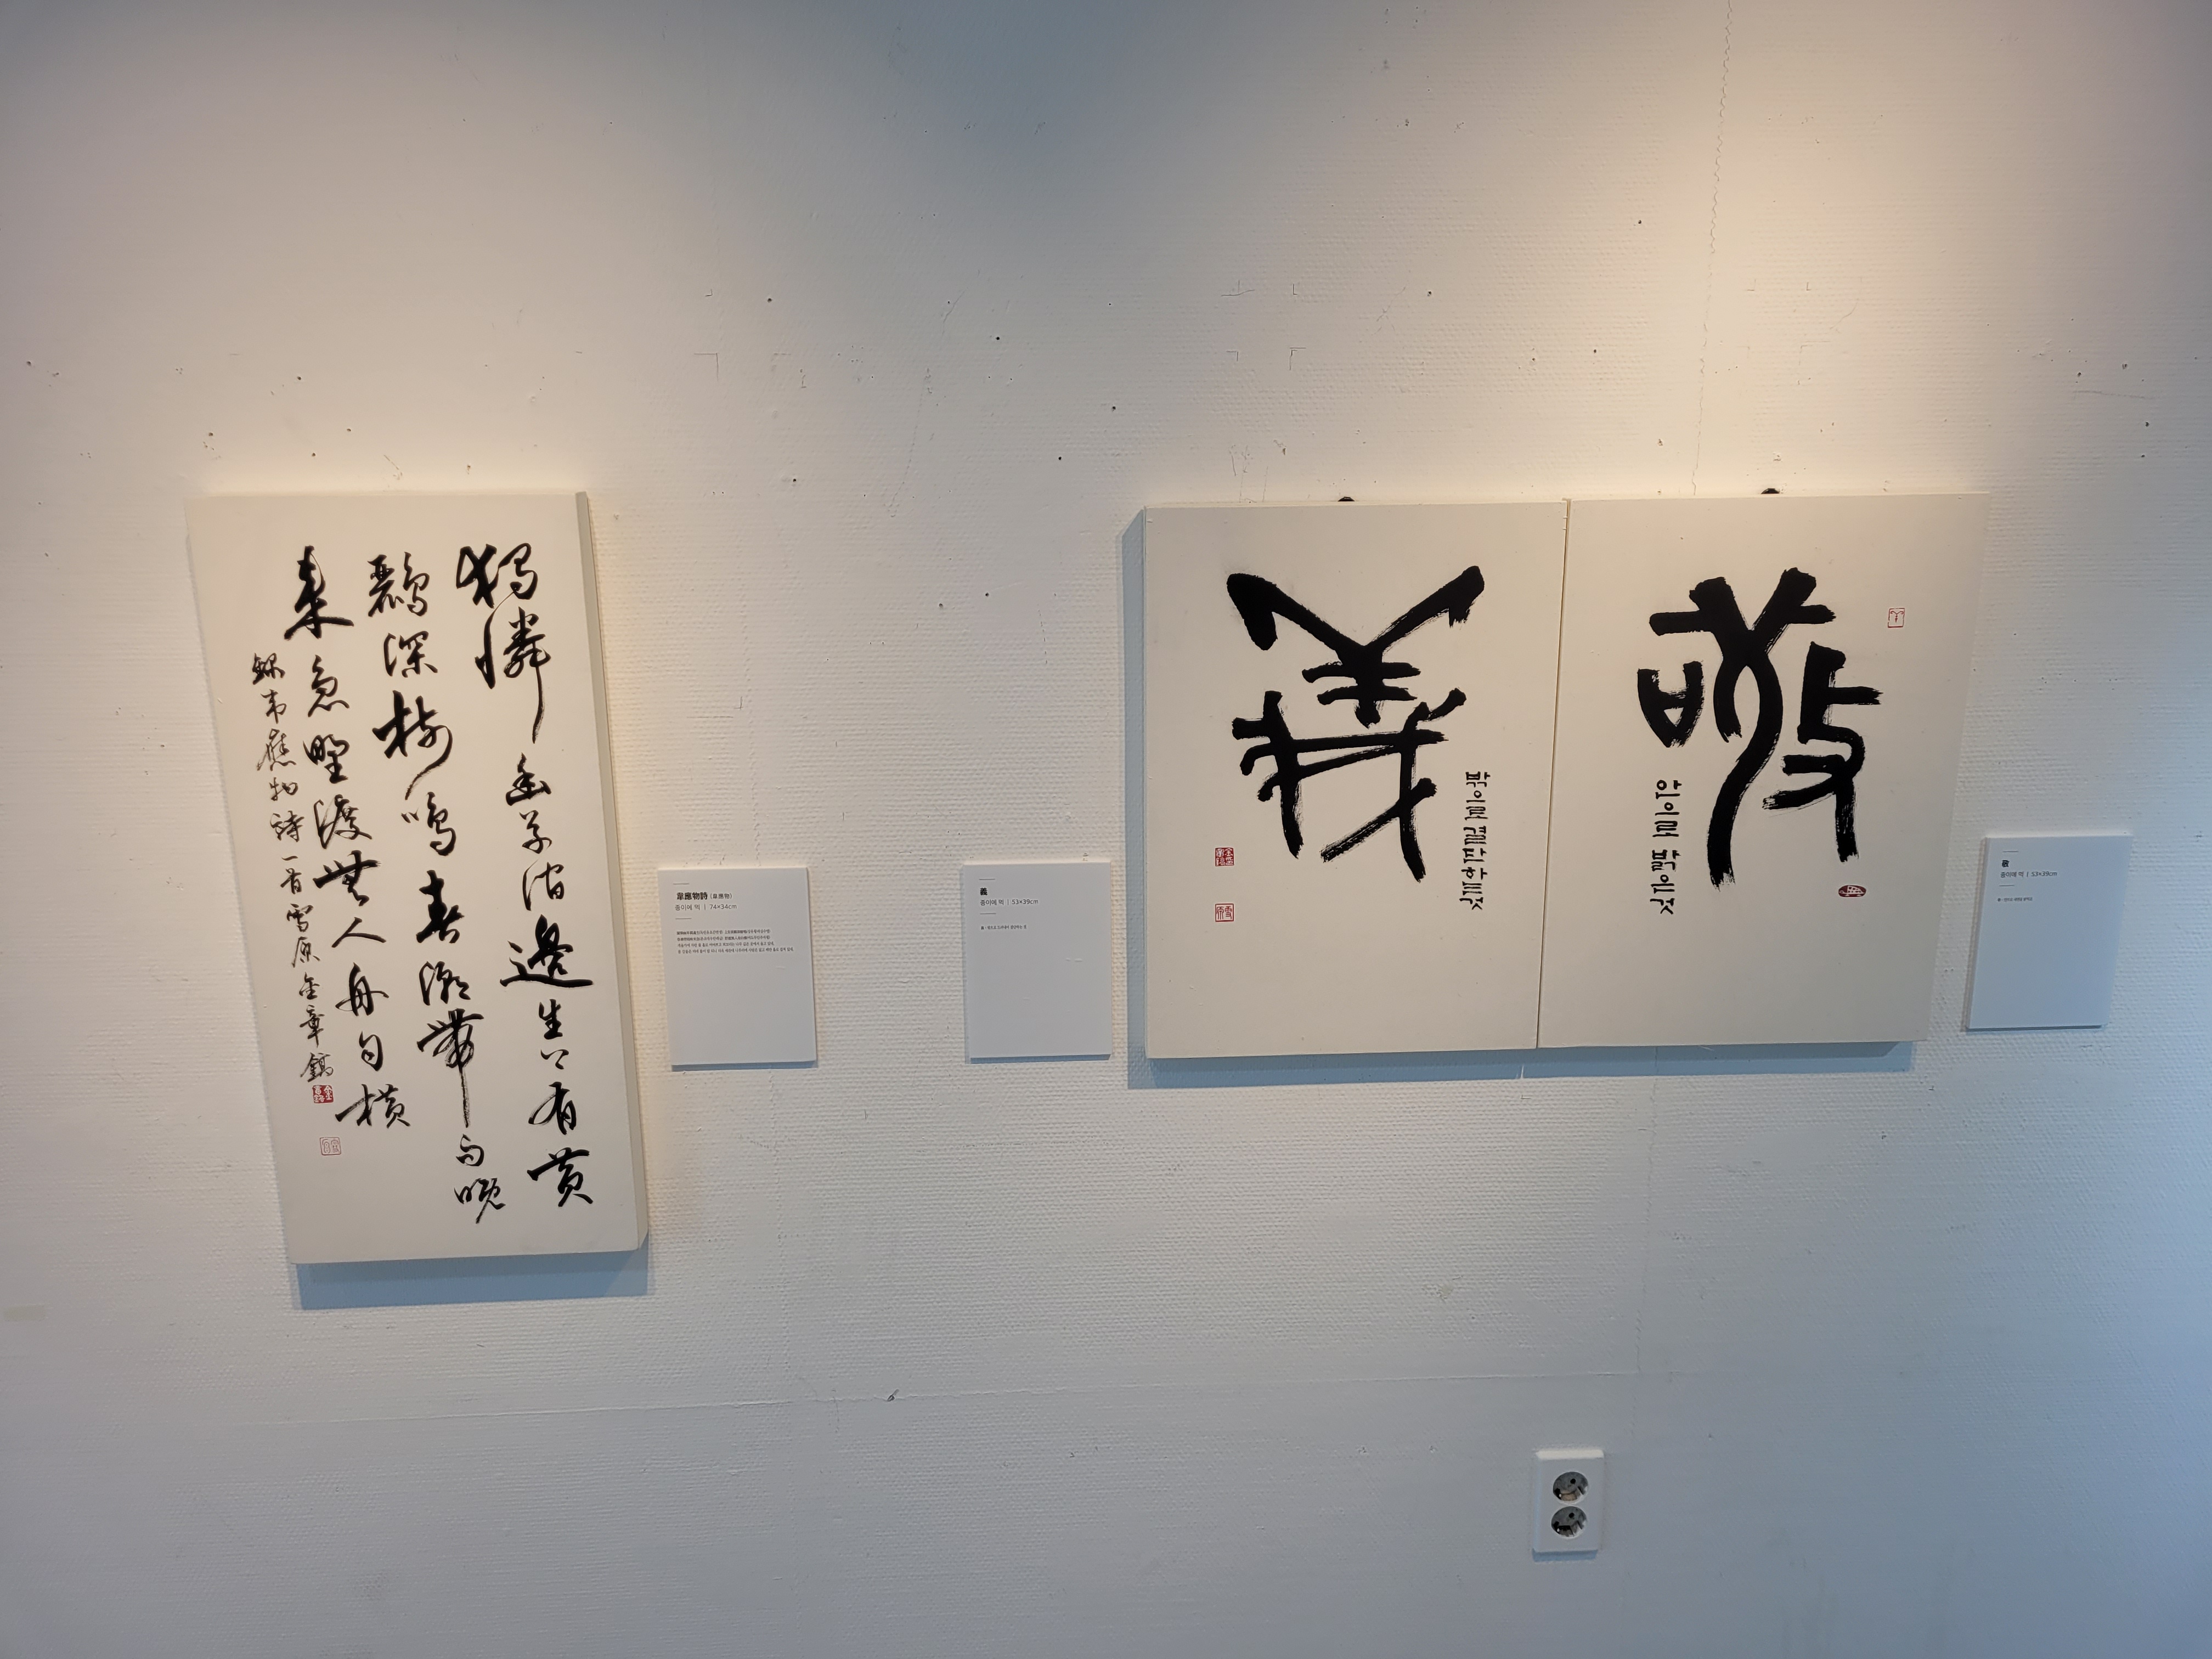 獨憐幽草澗邊生上有黃
鸝深樹鳴春潮帶雨晩
來急野渡無人舟自橫
錄韋應物詩一首雪原金章鎬
韋應物詩 (韋應物)
종이에 먹 | 74×34cm
義
종이에 먹 | 53×39cm
敬
안으로밝은것
義
밖으로결단하는것
敬
종이에 먹 | 53×39cm